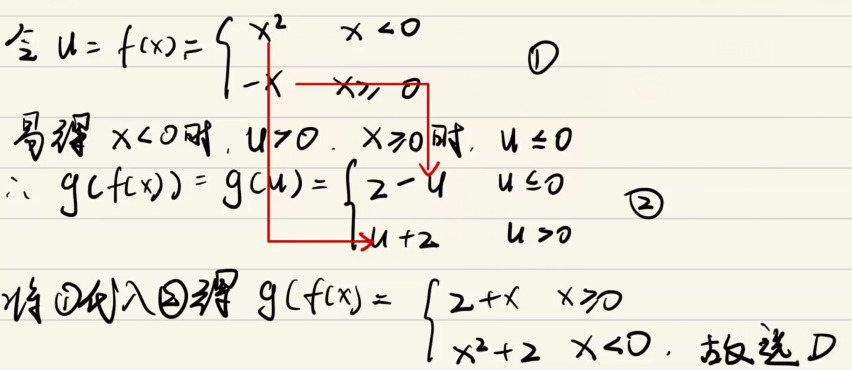 令 u = f(x) = { x² x < 0
-x x ≥ 0 ①
易得 x < 0时, u > 0. x ≥ 0时, u ≤ 0
∴ g(f(x)) = g(u) = { 2 - u u ≤ 0 ②
u + 2 u > 0
将①代入②得 g(f(x) = { 2 + x x ≥ 0
x² + 2 x < 0. 故选 D